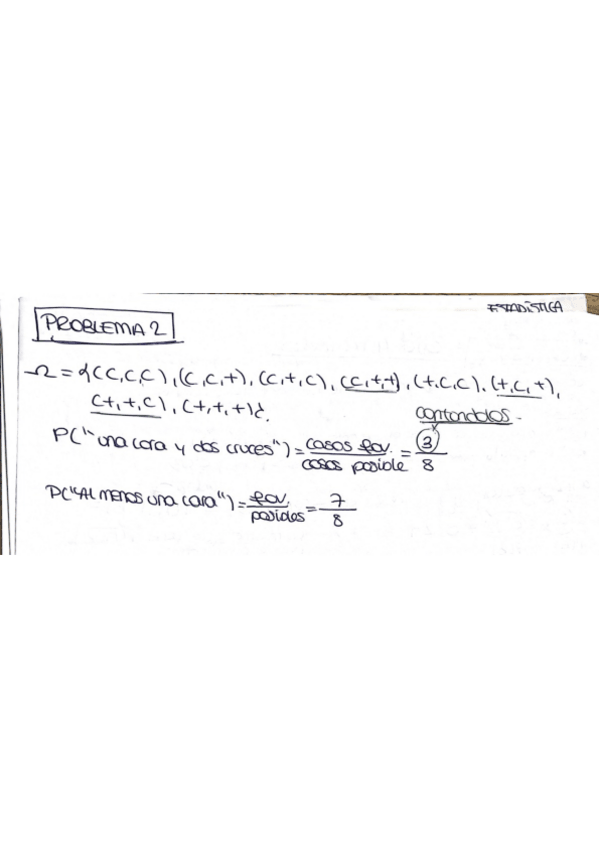 ESTADÍSTICA
PROBLEMA 2
Ω = {(C,C,C), (C,C,+), (C,+,C), (C,+,+), (+,C,C), (+,C,+),
(+,+,C), (+,+,+)}.
contandolos.
P("una cara y dos cruces") = casos fav. / casos posible = 3 / 8
P("Al menos una cara") = fav. / posibles = 7 / 8